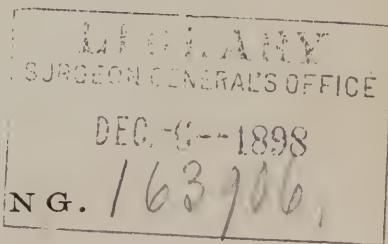 LIBRARY
SURGEON GENERAL'S OFFICE
DEC. 1898
NG.